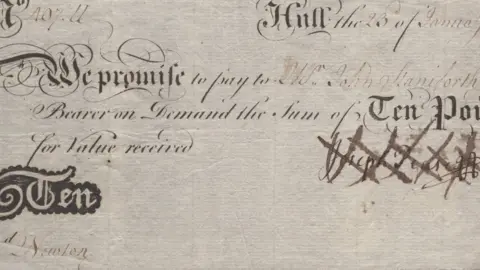 No 407.U Hull the 25 of January
We promise to pay to Mr. John Staniforth
Bearer on Demand the Sum of Ten Pou
for Value received
Ten
d Newton